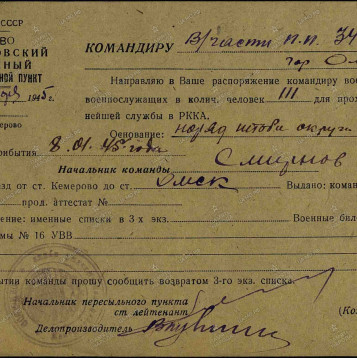 СССР
КОМАНДИРУ В/части п.п. 34
ВО
гор Ом
ОВСКИЙ
НЫЙ
НОЙ ПУНКТ
Направляю в Ваше распоряжение командиру вое
1945 г.
военнослужащих в колич. человек III для про
нейшей службы в РККА.
емерово
Основание: наряд штова округа
рибытия 8.01.45 года
Смирнов
Начальник команды
зд от ст. Кемерово до ст. Омск Выдано: коман
прод. аттестат №
ение: именные списки в 3 х экз. Военные бил
мы № 16 УВВ
ытии команды прошу сообщить возвратом 3-го экз. списка.
Начальник пересыльного пункта
ст лейтенант
(Ко
Делопроизводитель